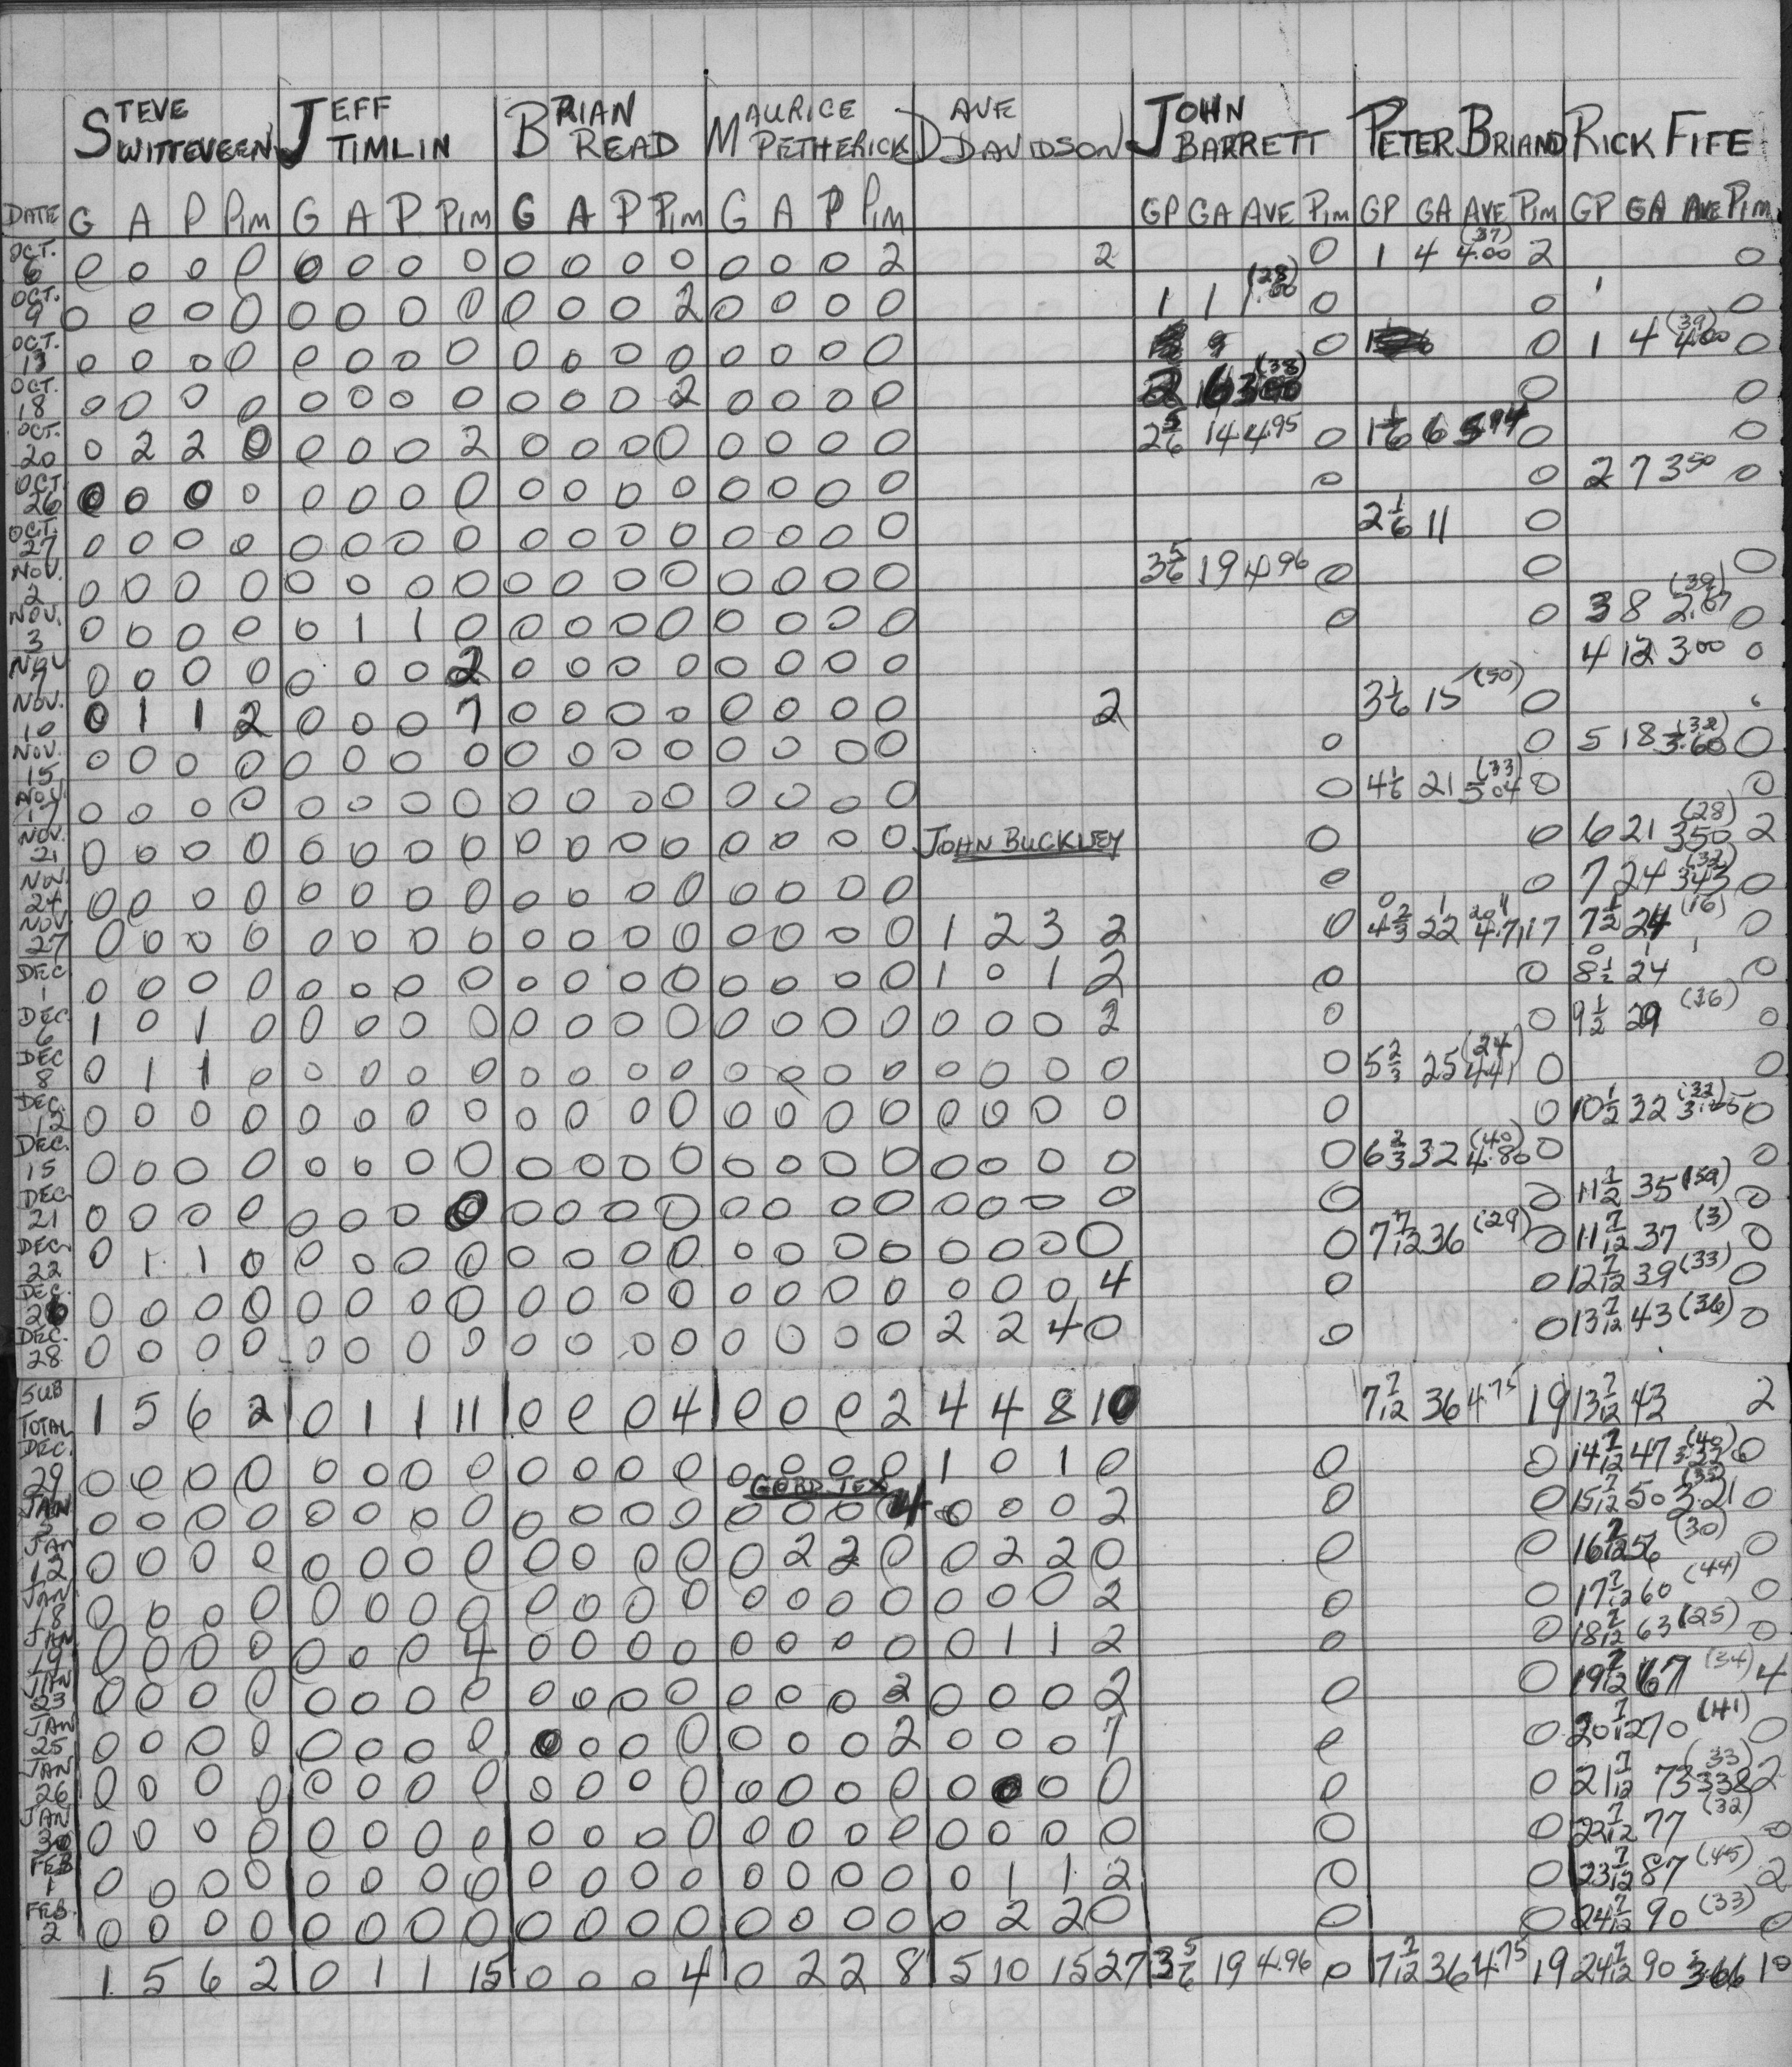 STEVE WITTEVEEN JEFF TIMLIN BRIAN READ MAURICE PETHERICK DAVE DAVIDSON JOHN BARRETT PETER BRIAND RICK FIFE
DATE G A P PIM G A P PIM G A P PIM G A P PIM GP GA AVE PIM GP GA AVE PIM GP GA AVE PIM
OCT. 6 0 0 0 0 0 0 0 0 0 0 0 0 0 0 0 2 2 0 1 4 4.00 (37) 2 0
OCT. 9 0 0 0 0 0 0 0 0 0 0 0 2 0 0 0 0 1 1 1.00 (28) 0 0 0
OCT. 13 0 0 0 0 0 0 0 0 0 0 0 0 0 0 0 0 0 0 1 4 4.00 (39) 0
OCT. 18 0 0 0 0 0 0 0 0 0 0 0 2 0 0 0 0 2 6 3.00 (38) 0 0
OCT. 20 0 2 2 0 0 0 0 2 0 0 0 0 0 0 0 0 2 5/6 14 4.95 0 1 1/6 6 0 0
OCT. 26 0 0 0 0 0 0 0 0 0 0 0 0 0 0 0 0 0 0 2 7 3.50 0
OCT. 27 0 0 0 0 0 0 0 0 0 0 0 0 0 0 0 0 2 1/6 11 0
NOV. 2 0 0 0 0 0 0 0 0 0 0 0 0 0 0 0 0 3 5/6 19 4.96 0 0 0
NOV. 3 0 0 0 0 0 1 1 0 0 0 0 0 0 0 0 0 0 0 3 8 2.67 (39) 0
NOV 9 0 0 0 0 0 0 0 2 0 0 0 0 0 0 0 0 4 12 3.00 0
NOV. 10 0 1 1 2 0 0 0 7 0 0 0 0 0 0 0 0 2 3 1/6 15 (50) 0
NOV. 15 0 0 0 0 0 0 0 0 0 0 0 0 0 0 0 0 0 0 5 18 3.60 (32) 0
NOV. 17 0 0 0 0 0 0 0 0 0 0 0 0 0 0 0 0 0 4 1/6 21 5.04 (33) 0 0
NOV. 21 0 0 0 0 0 0 0 0 0 0 0 0 0 0 0 0 JOHN BUCKLEY 0 0 6 21 3.50 (28) 2
NOV 24 0 0 0 0 0 0 0 0 0 0 0 0 0 0 0 0 0 0 7 24 3.43 (32) 0
NOV. 27 0 0 0 0 0 0 0 0 0 0 0 0 0 0 0 0 1 2 3 2 0 4 2/3 22 4.71 17 7 1/2 24 (16) 0
DEC 1 0 0 0 0 0 0 0 0 0 0 0 0 0 0 0 0 1 0 1 2 0 0 8 1/2 24 0
DEC 6 1 0 1 0 0 0 0 0 0 0 0 0 0 0 0 0 0 0 0 2 0 0 9 1/2 29 (36) 0
DEC 8 0 1 1 0 0 0 0 0 0 0 0 0 0 0 0 0 0 0 0 0 0 5 2/3 25 4.41 (24) 0 0
DEC. 12 0 0 0 0 0 0 0 0 0 0 0 0 0 0 0 0 0 0 0 0 0 0 10 1/2 32 (32) 0
DEC. 15 0 0 0 0 0 0 0 0 0 0 0 0 0 0 0 0 0 0 0 0 0 6 2/3 32 4.80 (40) 0 0
DEC 21 0 0 0 0 0 0 0 0 0 0 0 0 0 0 0 0 0 0 0 0 0 0 11 1/2 35 (59) 0
DEC 22 0 1 1 0 0 0 0 0 0 0 0 0 0 0 0 0 0 0 0 0 0 7 7/12 36 (29) 0 11 7/12 37 (3) 0
DEC. 26 0 0 0 0 0 0 0 0 0 0 0 0 0 0 0 0 0 0 0 4 0 0 12 7/12 39 (33) 0
DEC. 28 0 0 0 0 0 0 0 0 0 0 0 0 0 0 0 0 2 2 4 0 0 0 13 7/12 43 (36) 0
SUB TOTAL 1 5 6 2 0 1 1 11 0 0 0 4 0 0 0 2 4 4 8 10 7 7/12 36 4.75 19 13 7/12 43 2
DEC. 29 0 0 0 0 0 0 0 0 0 0 0 0 0 0 0 0 1 0 1 0 0 0 14 7/12 47 (40) 0
JAN 0 0 0 0 0 0 0 0 0 0 0 0 0 0 0 4 0 0 0 2 0 0 15 7/12 50 3.21 0
JAN 12 0 0 0 0 0 0 0 0 0 0 0 0 0 2 2 0 0 2 2 0 0 0 16 7/12 56 (30) 0
JAN 18 0 0 0 0 0 0 0 0 0 0 0 0 0 0 0 0 0 0 0 2 0 0 17 7/12 60 (44) 0
JAN 19 0 0 0 0 0 0 0 4 0 0 0 0 0 0 0 0 0 1 1 2 0 0 18 7/12 63 (25) 0
JAN 23 0 0 0 0 0 0 0 0 0 0 0 0 0 0 0 2 0 0 0 2 0 0 19 7/12 67 (34) 4
JAN 25 0 0 0 0 0 0 0 0 0 0 0 0 0 0 0 2 0 0 0 7 0 0 20 7/12 70 (41) 0
JAN 26 0 0 0 0 0 0 0 0 0 0 0 0 0 0 0 0 0 0 0 0 0 0 21 7/12 73 3.38 (33) 2
JAN 30 0 0 0 0 0 0 0 0 0 0 0 0 0 0 0 0 0 0 0 0 0 0 22 7/12 77 (32) 0
FEB 1 0 0 0 0 0 0 0 0 0 0 0 0 0 0 0 0 0 1 1 2 0 0 23 7/12 87 (45) 2
FEB. 2 0 0 0 0 0 0 0 0 0 0 0 0 0 0 0 0 0 2 2 0 0 0 24 7/12 90 (33) 0
1 5 6 2 0 1 1 15 0 0 0 4 0 2 2 8 5 10 15 27 3 5/6 19 4.96 0 7 7/12 36 4.75 19 24 7/12 90 3.66 10